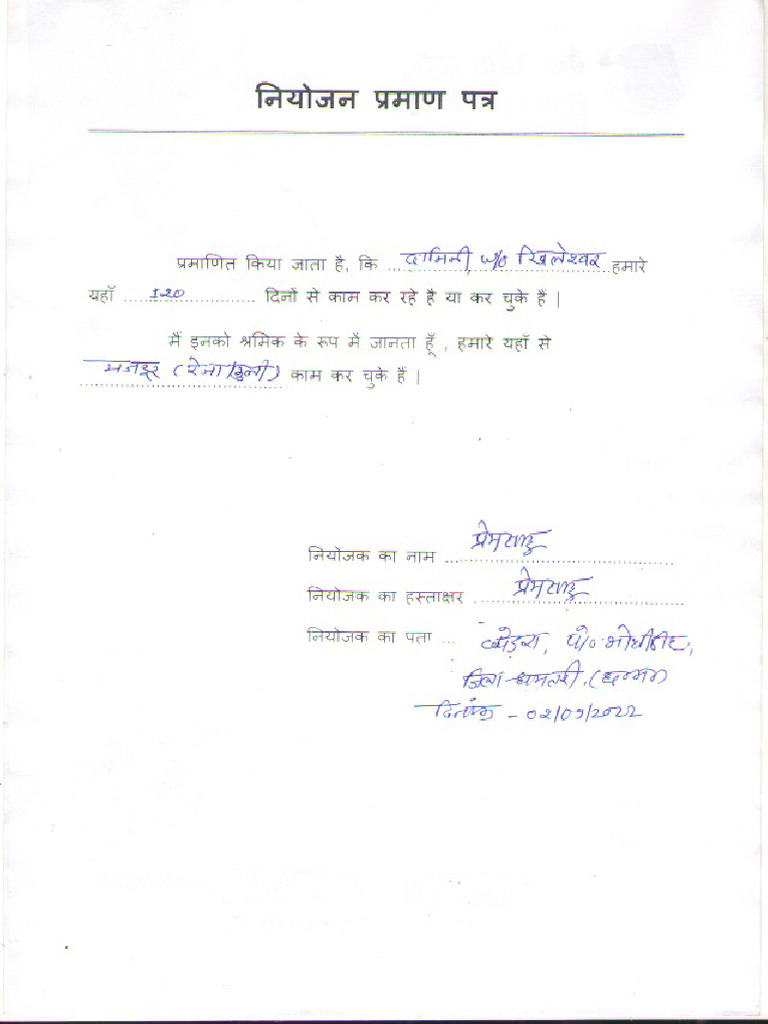 नियोजन प्रमाण पत्र
प्रमाणित किया जाता है, कि दामिनी, w/o खिलेश्वर हमारे
यहाँ 120 दिनों से काम कर रहे है या कर चुके हैं |
मैं इनको श्रमिक के रूप में जानता हूँ , हमारे यहाँ से
मजदूर (रेजा/कुली) काम कर चुके हैं |
नियोजक का नाम प्रेमसाहू
नियोजक का हस्ताक्षर प्रेमसाहू
नियोजक का पता पो०
जिला-धमतरी,
दिनांक - 02/09/2022